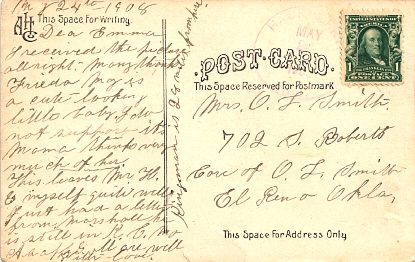 My 24th 1908
This Space for Writing.
Dear Emma
I received the picture
allright. Many thanks
Frieda May is
a cute looking
little baby. I do
not suppose its
Mama thinks very
much of her.
This leaves Mr H.
& myself quite well
Just had a letter
from Marshall he
is still in K.C. Mo
all are well
With love.
Kingman is 28 miles from here
MAY
POST CARD.
This Space Reserved for Postmark
Mrs. O. L. Smith
702 S. Roberts
Care of O. L. Smith
El Reno Okla.
This Space for Address Only
1 1
ONE CENT